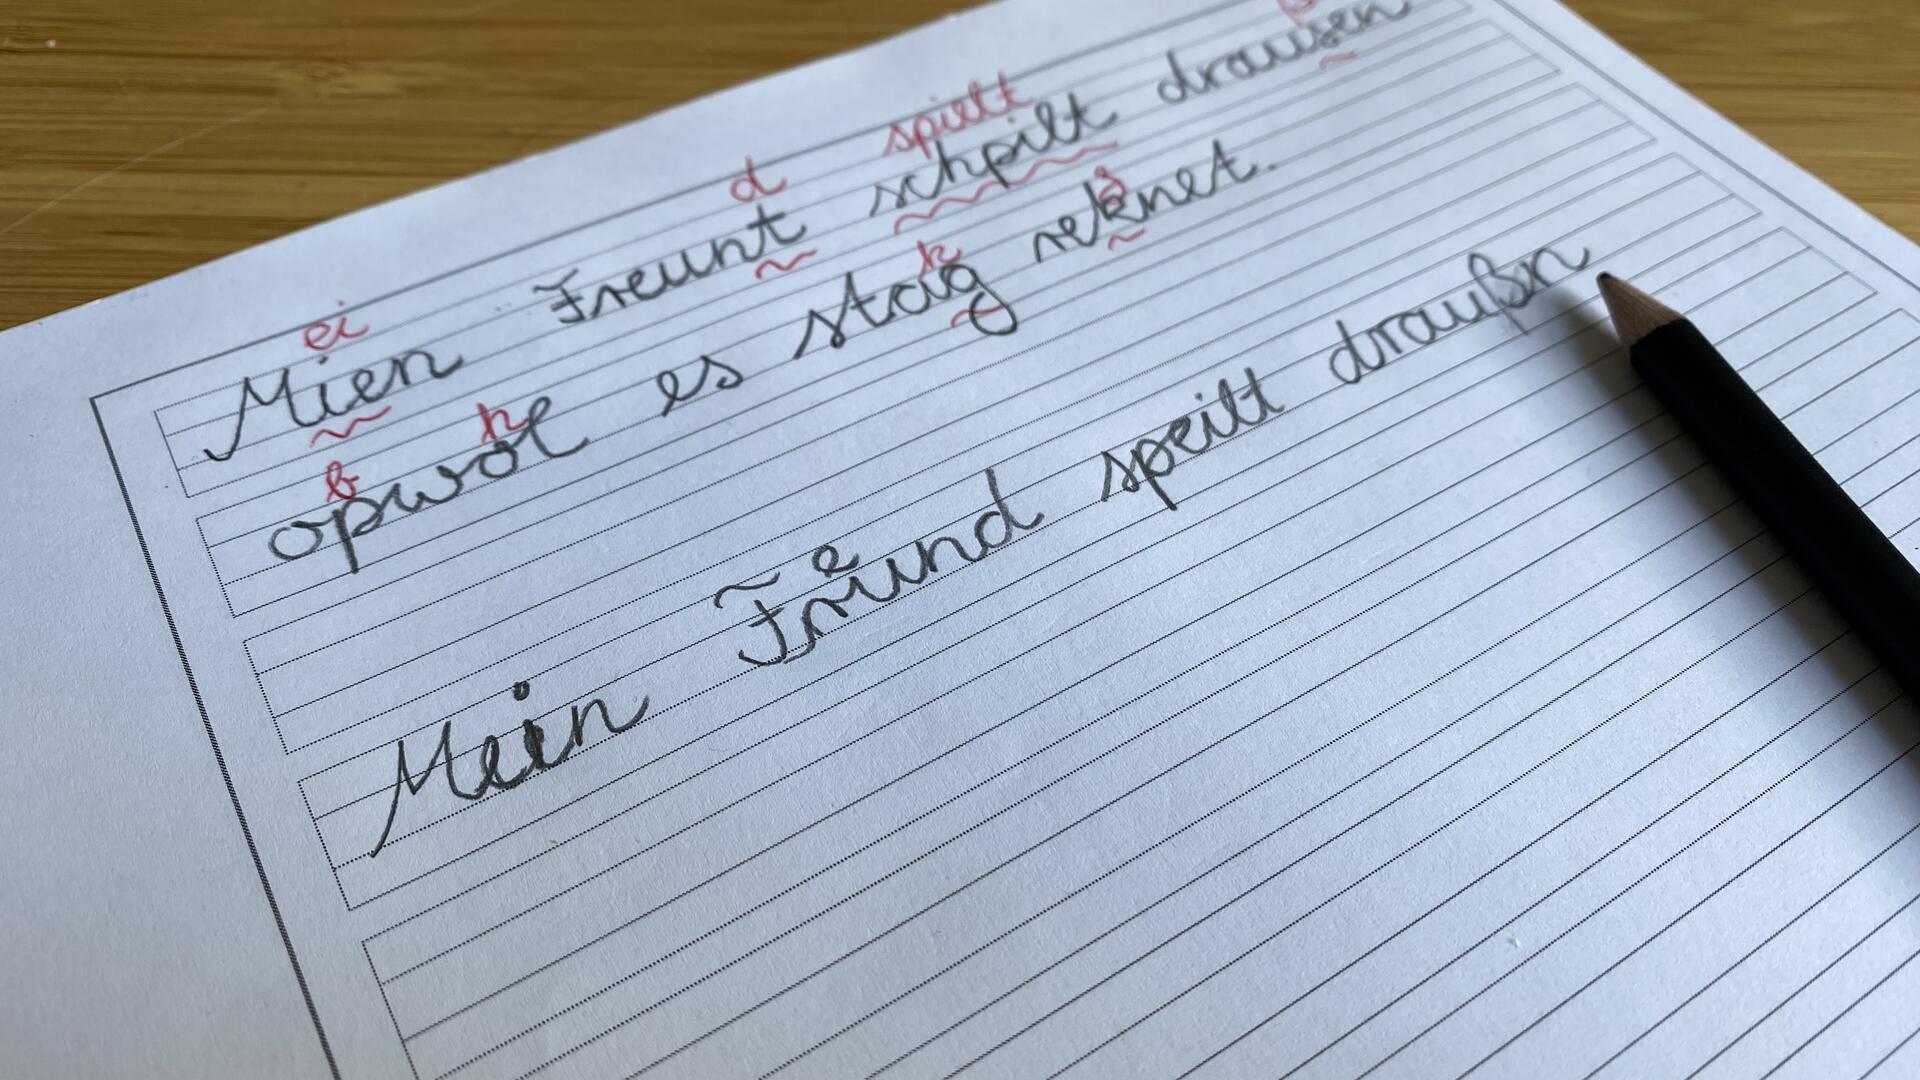 ei d spielt
Mien Freunt schpilt drausen
b h k g
opwol es starg reknet.
e
Mein Frund speilt draußn